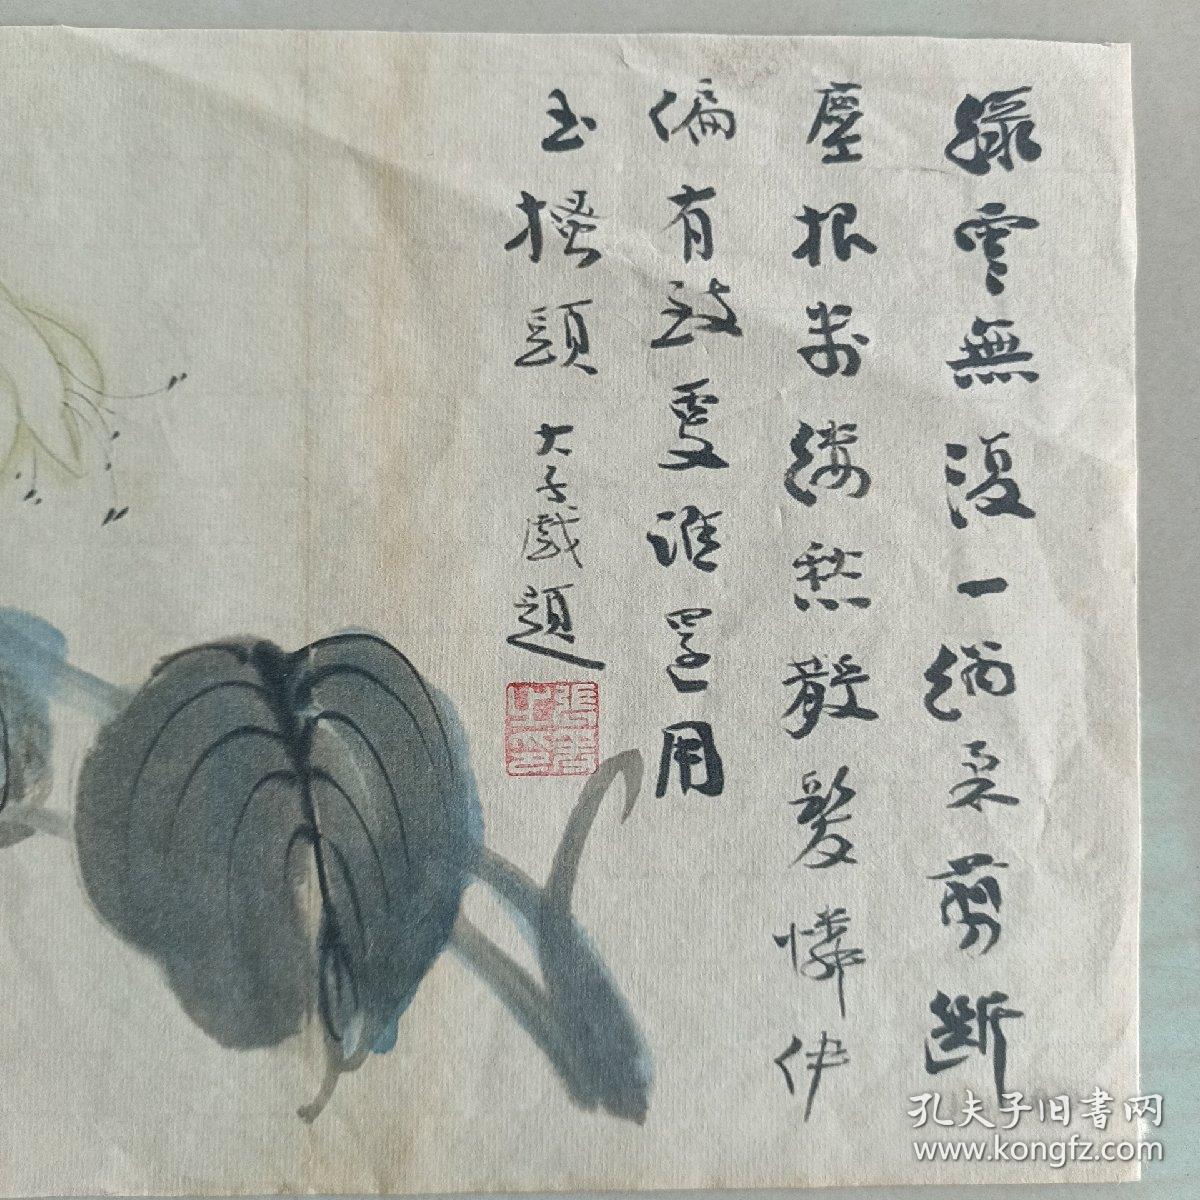 綠雲無復一綹柔剪斷
塵根萬縷愁散髮憐伊
偏有致更誰還用
玉搔頭
大千戲題
孔夫子旧書网
www.kongfz.com